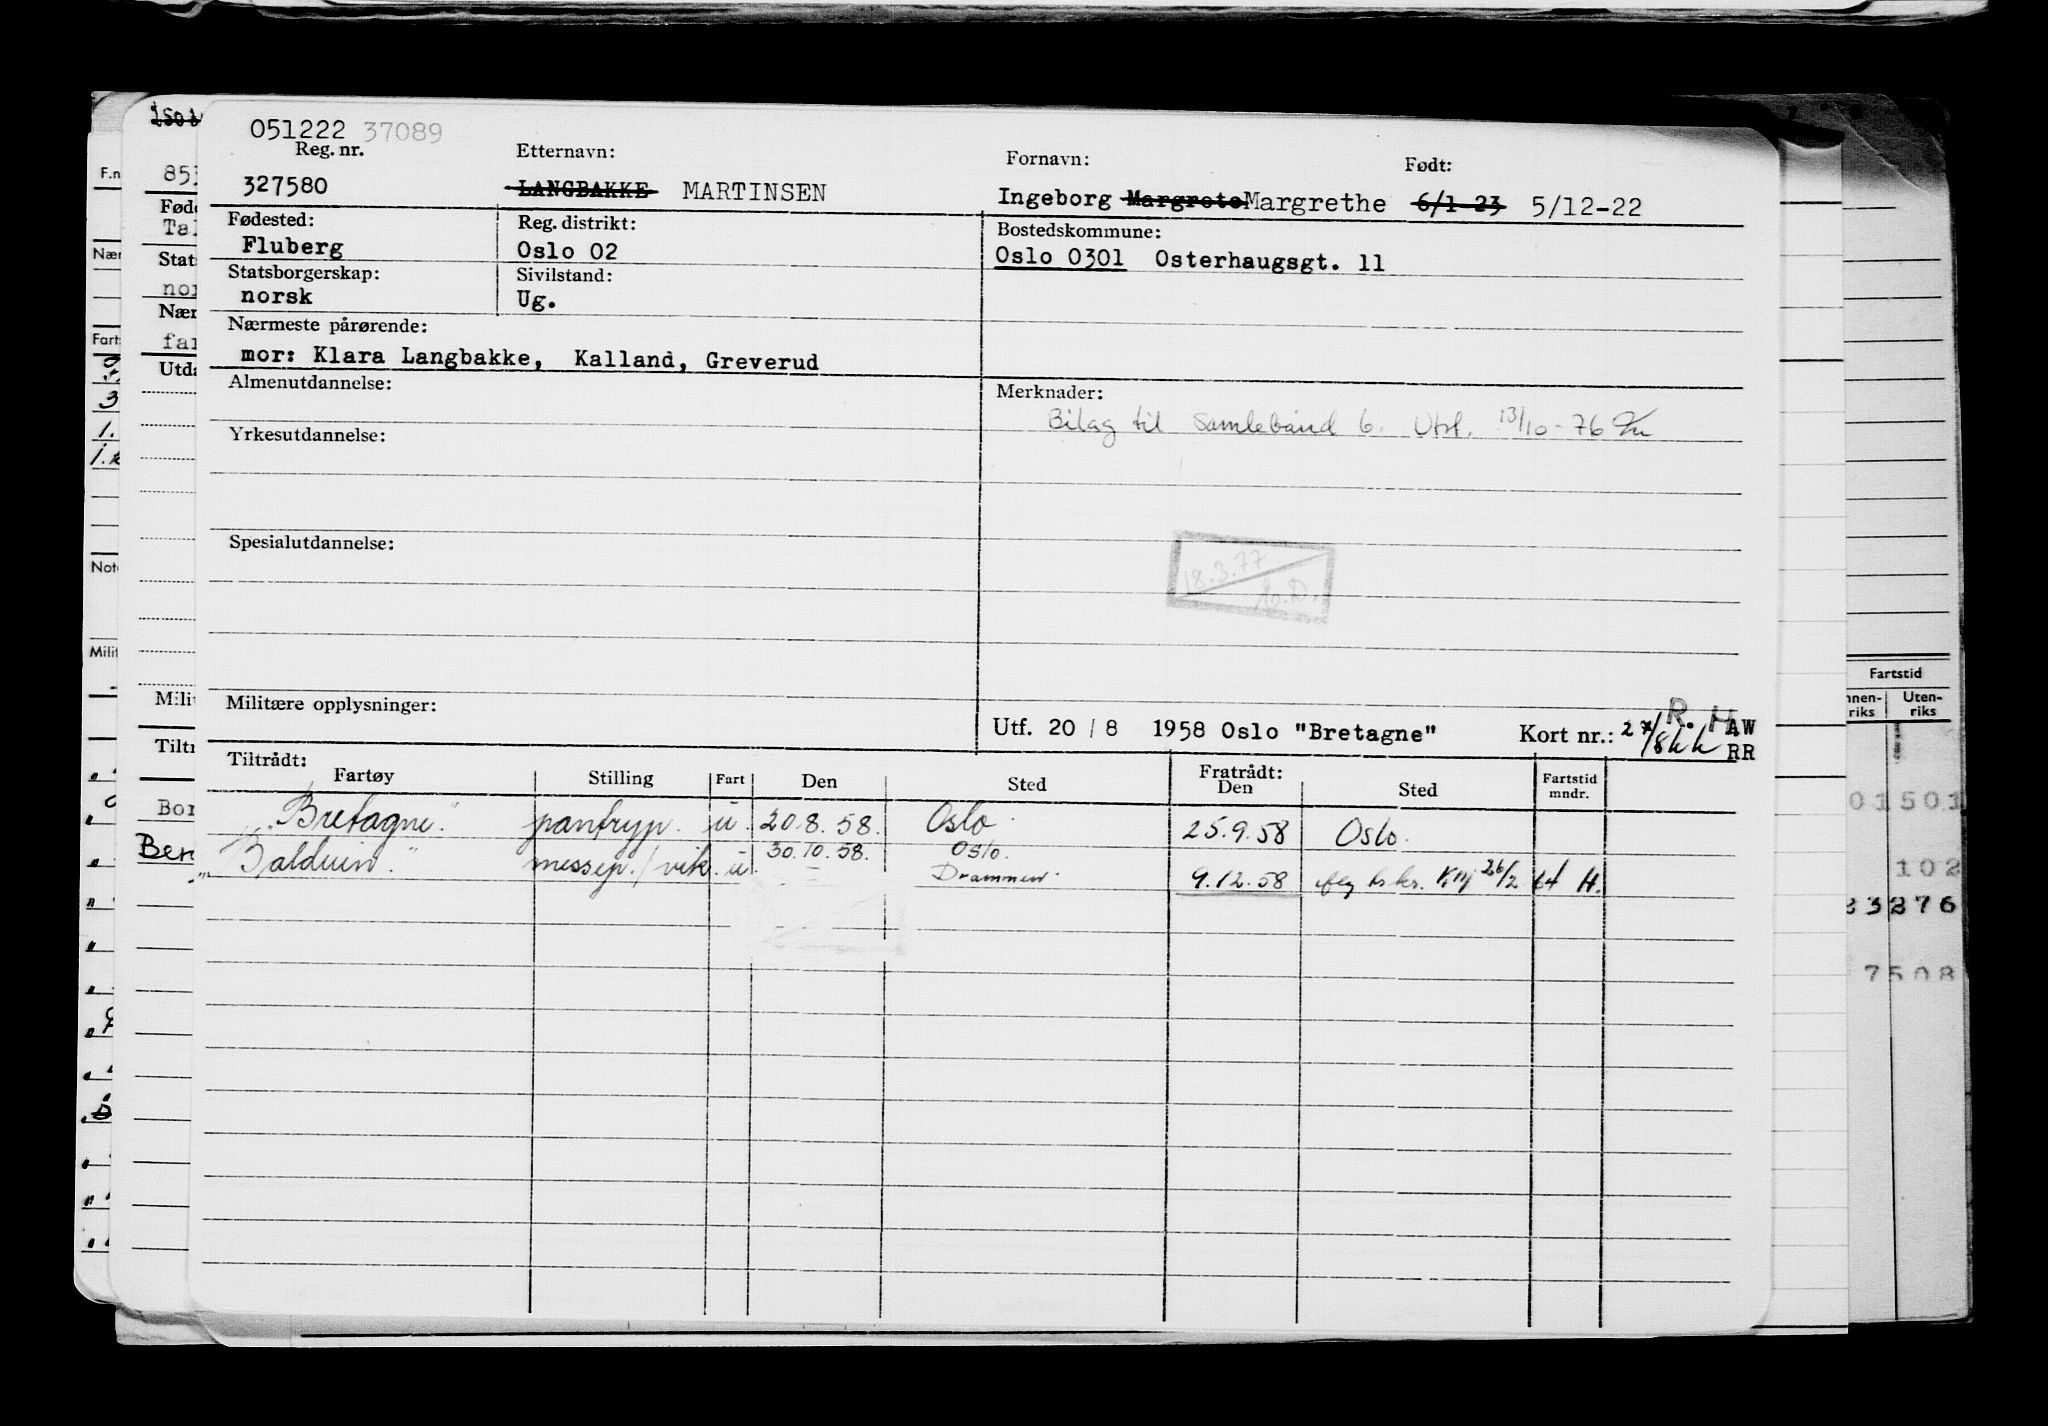 051222 37089
Reg. nr. Etternavn: Fornavn: Født:
327580 LANGBAKKE MARTINSEN Ingeborg Margrete Margrethe 6/1-23 5/12-22
Fødested: Reg. distrikt: Bostedskommune:
Fluberg Oslo 02 Oslo 0301 Osterhaugsgt. 11
Statsborgerskap: Sivilstand:
norsk Ug.
Nærmeste pårørende:
mor: Klara Langbakke, Kalland, Greverud
Almenutdannelse: Merknader:
Bilag til Samlebånd 6. Utsl. 13/10-76
Yrkesutdannelse:
Spesialutdannelse:
18.3.77
Militære opplysninger:
Utf. 20 / 8 1958 Oslo "Bretagne" Kort nr.: 2 R. H AW
RR
Tiltrådt: Fratrådt:
Fartøy Stilling Fart Den Sted Den Sted Fartstid mndr.
"Bretagne" pantryp. u. 20.8.58. Oslo. 25.9.58 Oslo.
"Balduin" messep./vik. u. 30.10.58. Oslo.
Drammen. 9.12.58 26/2 64 H.
F.n
Nær
Fart
3
1.
Not
Milit
853
Fød
Tal
Stats
nor
Nær
far
Utda
Milit
Tiltr
Bor
Ber
Fartstid
Innen-riks Uten-riks
01 501
102
23276
7508